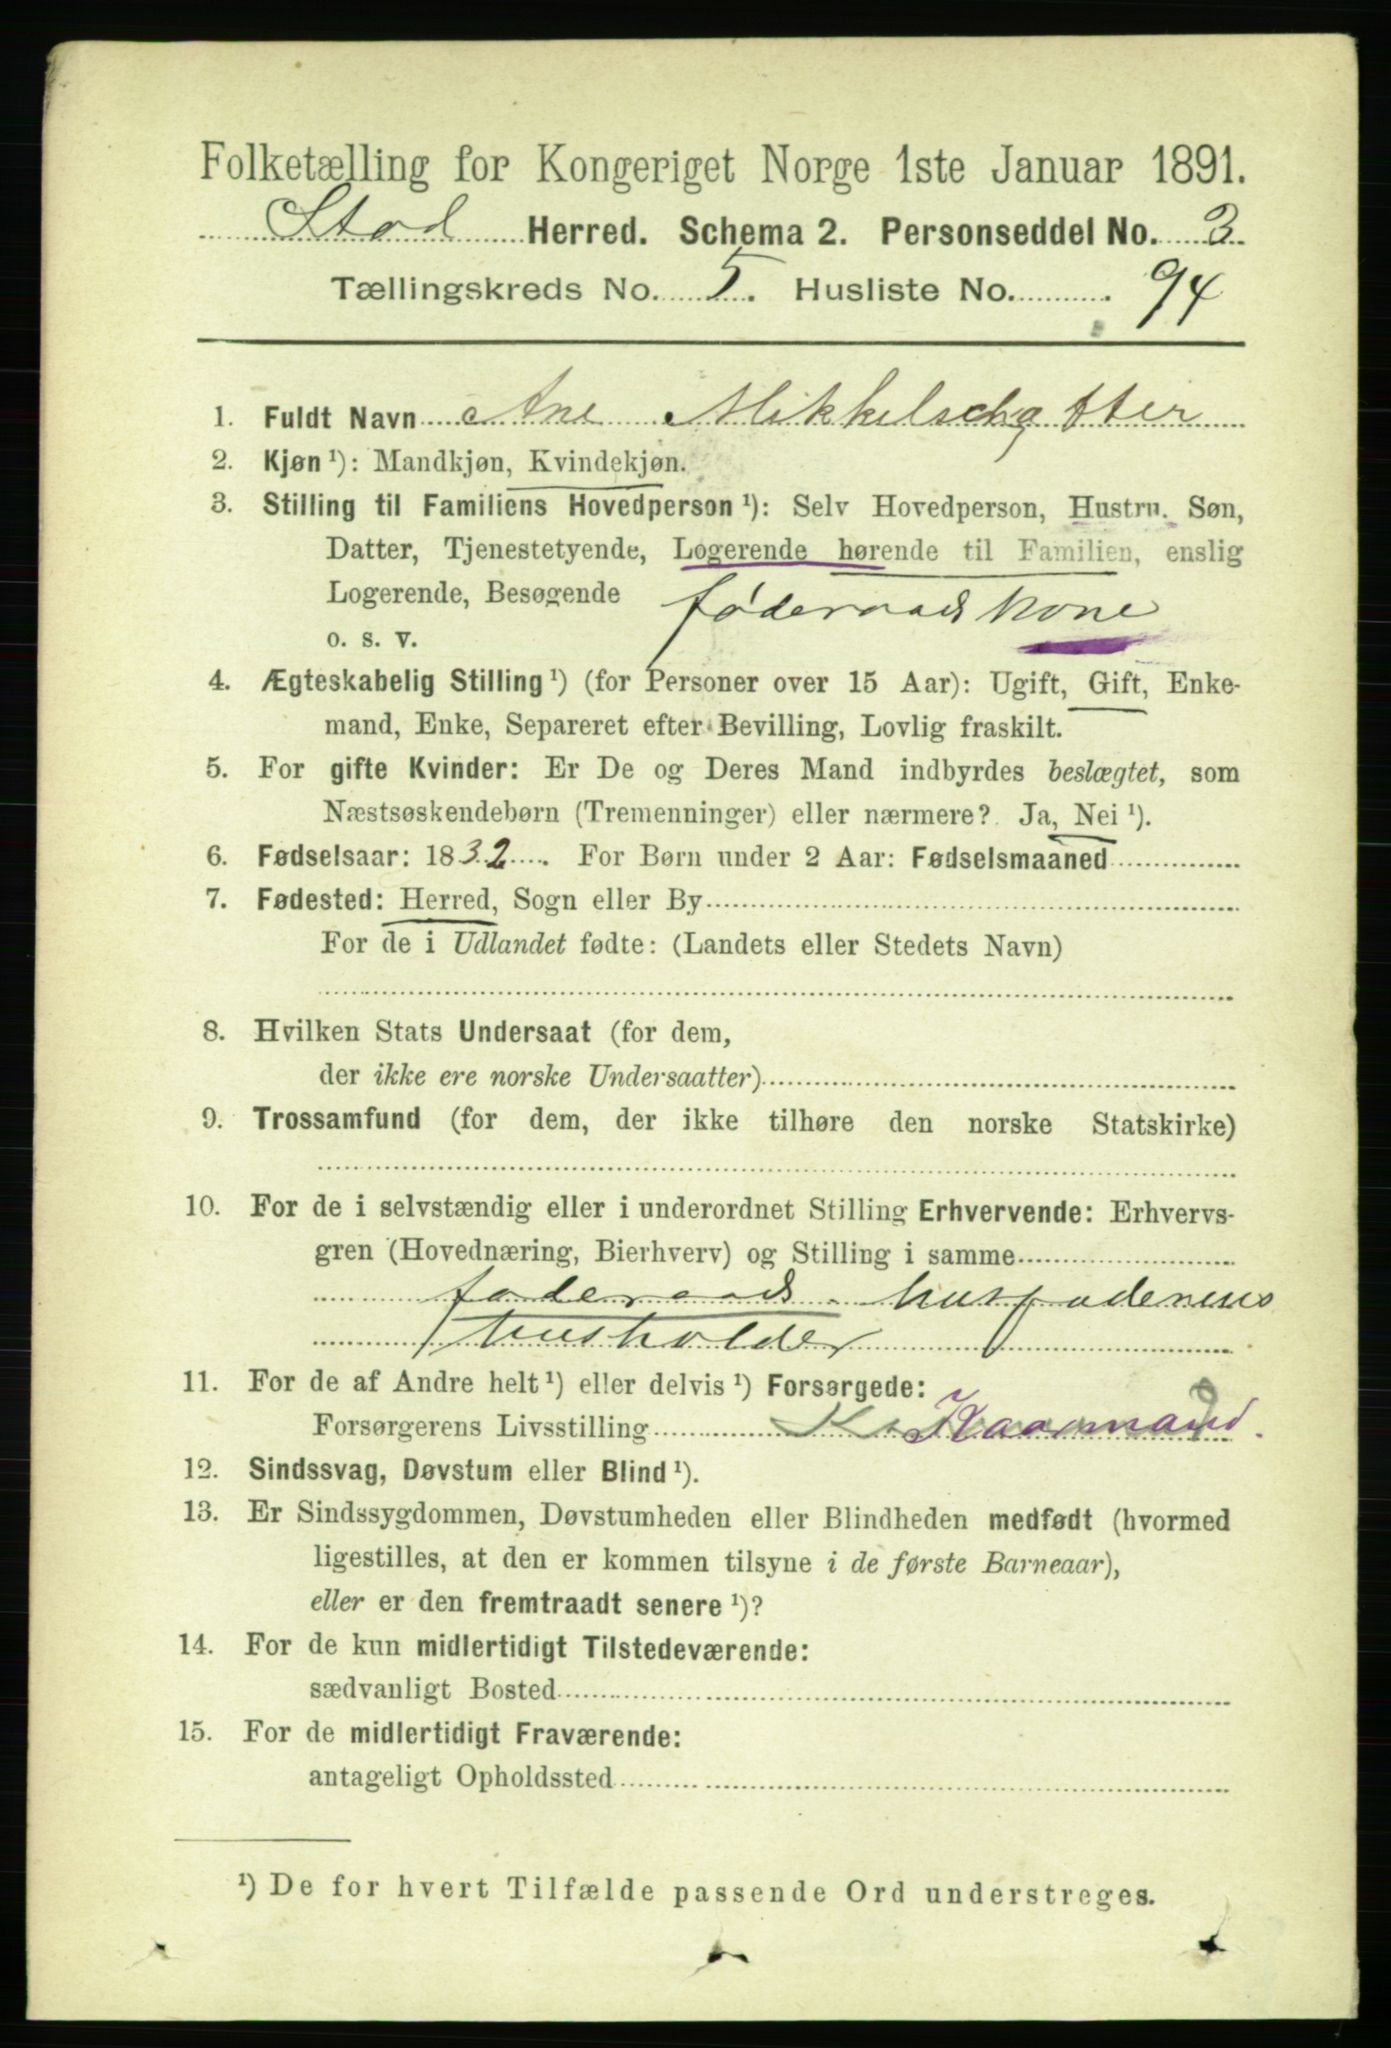 Folketælling for Kongeriget Norge 1ste Januar 1891.
Stod Herred. Schema 2. Personseddel No. 3.
Tællingskreds No. 5. Husliste No. 94
1. Fuldt Navn Ane Mikkelsdatter
2. Kjøn ¹): Mandkjøn, Kvindekjøn.
3. Stilling til Familiens Hovedperson ¹): Selv Hovedperson, Hustru. Søn,
Datter, Tjenestetyende, Logerende hørende til Familien, enslig
Logerende, Besøgende føderaads kone
o. s. v.
4. Ægteskabelig Stilling ¹) (for Personer over 15 Aar): Ugift, Gift, Enke-
mand, Enke, Separeret efter Bevilling, Lovlig fraskilt.
5. For gifte Kvinder: Er De og Deres Mand indbyrdes beslægtet, som
Næstsøskendebørn (Tremenninger) eller nærmere? Ja, Nei ¹).
6. Fødselsaar: 1832. For Børn under 2 Aar: Fødselsmaaned
7. Fødested: Herred, Sogn eller By
For de i Udlandet fødte: (Landets eller Stedets Navn)
8. Hvilken Stats Undersaat (for dem,
der ikke ere norske Undersaatter)
9. Trossamfund (for dem, der ikke tilhøre den norske Statskirke)
10. For de i selvstændig eller i underordnet Stilling Erhvervende: Erhvervs-
gren (Hovednæring, Bierhverv) og Stilling i samme
føderaads husfaderens
husholder
11. For de af Andre helt ¹) eller delvis ¹) Forsørgede:
Forsørgerens Livsstilling Kaarmand.
12. Sindssvag, Døvstum eller Blind ¹).
13. Er Sindssygdommen, Døvstumheden eller Blindheden medfødt (hvormed
ligestilles, at den er kommen tilsyne i de første Barneaar),
eller er den fremtraadt senere ¹)?
14. For de kun midlertidigt Tilstedeværende:
sædvanligt Bosted
15. For de midlertidigt Fraværende:
antageligt Opholdssted
¹) De for hvert Tilfælde passende Ord understreges.